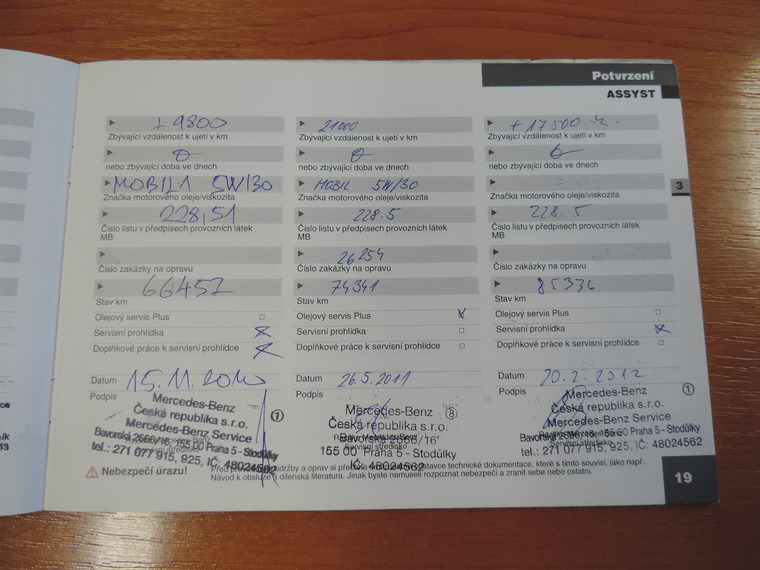 Potvrzení
ASSYST
+ 9800
Zbývající vzdálenost k ujetí v km
nebo zbývající doba ve dnech
MOBIL 1 5W/30
Značka motorového oleje/viskozita
228,51
Číslo listu v předpisech provozních látek
MB
Číslo zakázky na opravu
66457
Stav km
Olejový servis Plus
Servisní prohlídka
Doplňkové práce k servisní prohlídce
Datum 15.11.2010
Podpis
Mercedes-Benz
Česká republika s.r.o.
Mercedes-Benz Service
Bavorská 2666/16, 155 00 Praha 5 - Stodůlky
tel.: 271 077 915, 925, IČ: 48024562
1
21000
Zbývající vzdálenost k ujetí v km
nebo zbývající doba ve dnech
MOBIL 5W/30
Značka motorového oleje/viskozita
228.5
Číslo listu v předpisech provozních látek
MB
26254
Číslo zakázky na opravu
74341
Stav km
Olejový servis Plus
Servisní prohlídka
Doplňkové práce k servisní prohlídce
Datum 26.5.2011
Podpis
Mercedes-Benz
Česká republika s.r.o.
Bavorská 2666/16
155 00 Praha 5 - Stodůlky
IČ: 48024562
8
+ 17500
Zbývající vzdálenost k ujetí v km
nebo zbývající doba ve dnech
Značka motorového oleje/viskozita
228.5
Číslo listu v předpisech provozních látek
MB
Číslo zakázky na opravu
85336
Stav km
Olejový servis Plus
Servisní prohlídka
Doplňkové práce k servisní prohlídce
Datum 20.2.2012
Podpis
Mercedes-Benz
Česká republika s.r.o.
Mercedes-Benz Service
Bavorská 2666/16, 155 00 Praha 5 - Stodůlky
tel.: 271 077 915, 925, IČ: 48024562
1
3
Nebezpečí úrazu!
Před údržby a oprav si technické dokumentace, které s tímto souvisí, jako např.
Návod k obsluze a dílenská literatura. Jinak byste nemuseli rozpoznat nebezpečí a zranit sebe nebo ostatní.
19